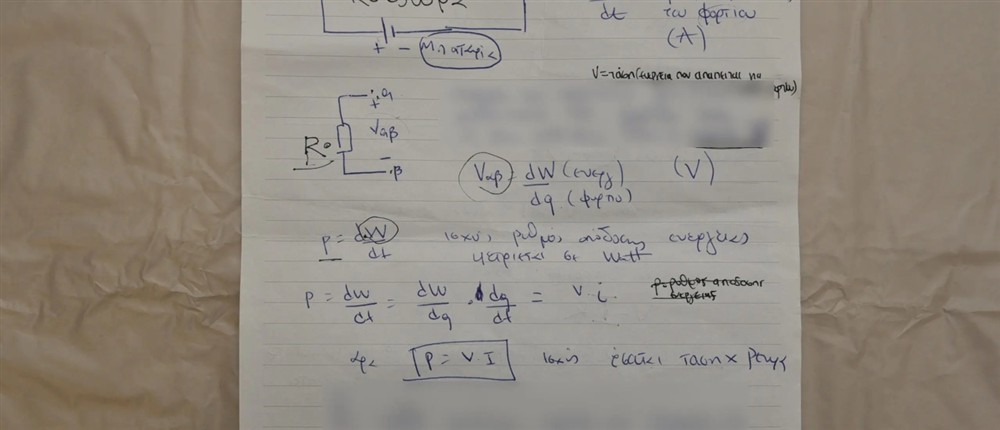 dt του φορτίου
+ - Μπαταρίες (A)
V=τάση (ενέργεια που απαιτείται να
+ α
Vαβ
R
- β
Vαβ = dW (ενεργ) (V)
dq (φορτίο)
p = dW ισχύς ρυθμός απόδοσης ενέργειας
dt μετριέται σε Watt
p = dW = dW . dq = v i.
dt dq dt
p = ρυθμός απόδοσης
ενέργειας
άρα P = V.I ισχύς ισούται τάση x ρεύμα